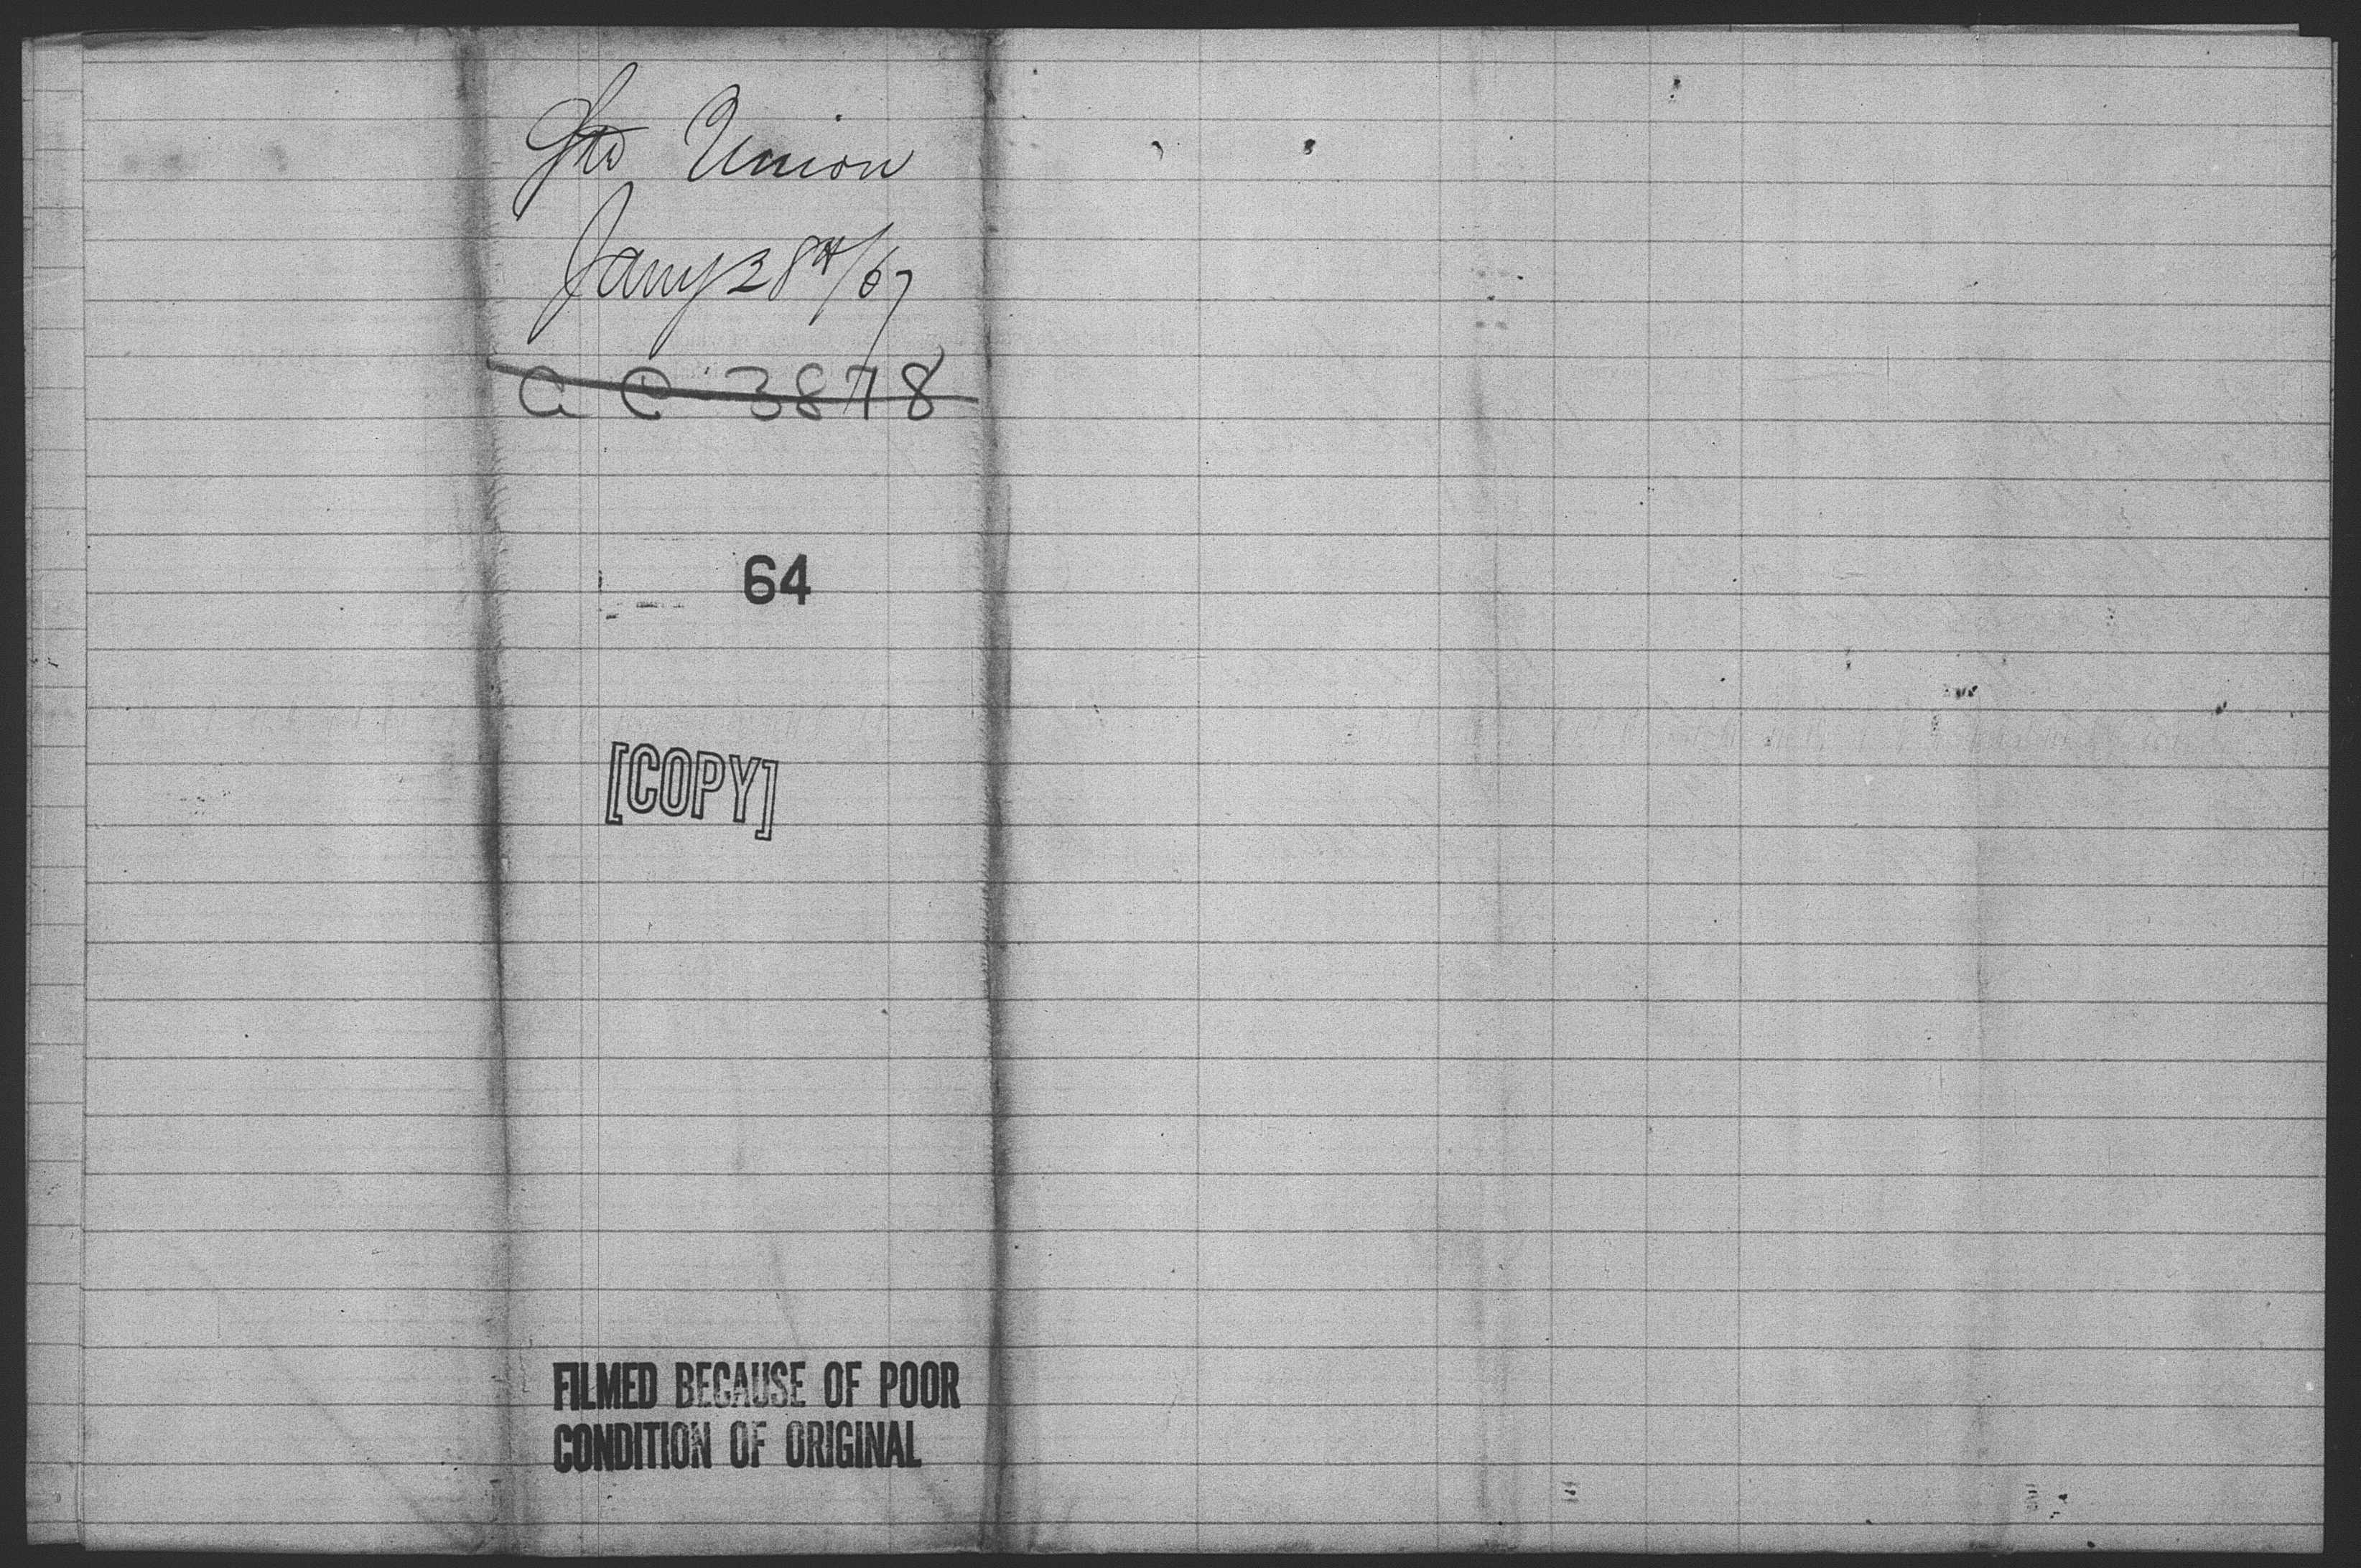 Str Union
Jany 28th/67
a c 3878
64
[COPY]
FILMED BECAUSE OF POOR
CONDITION OF ORIGINAL